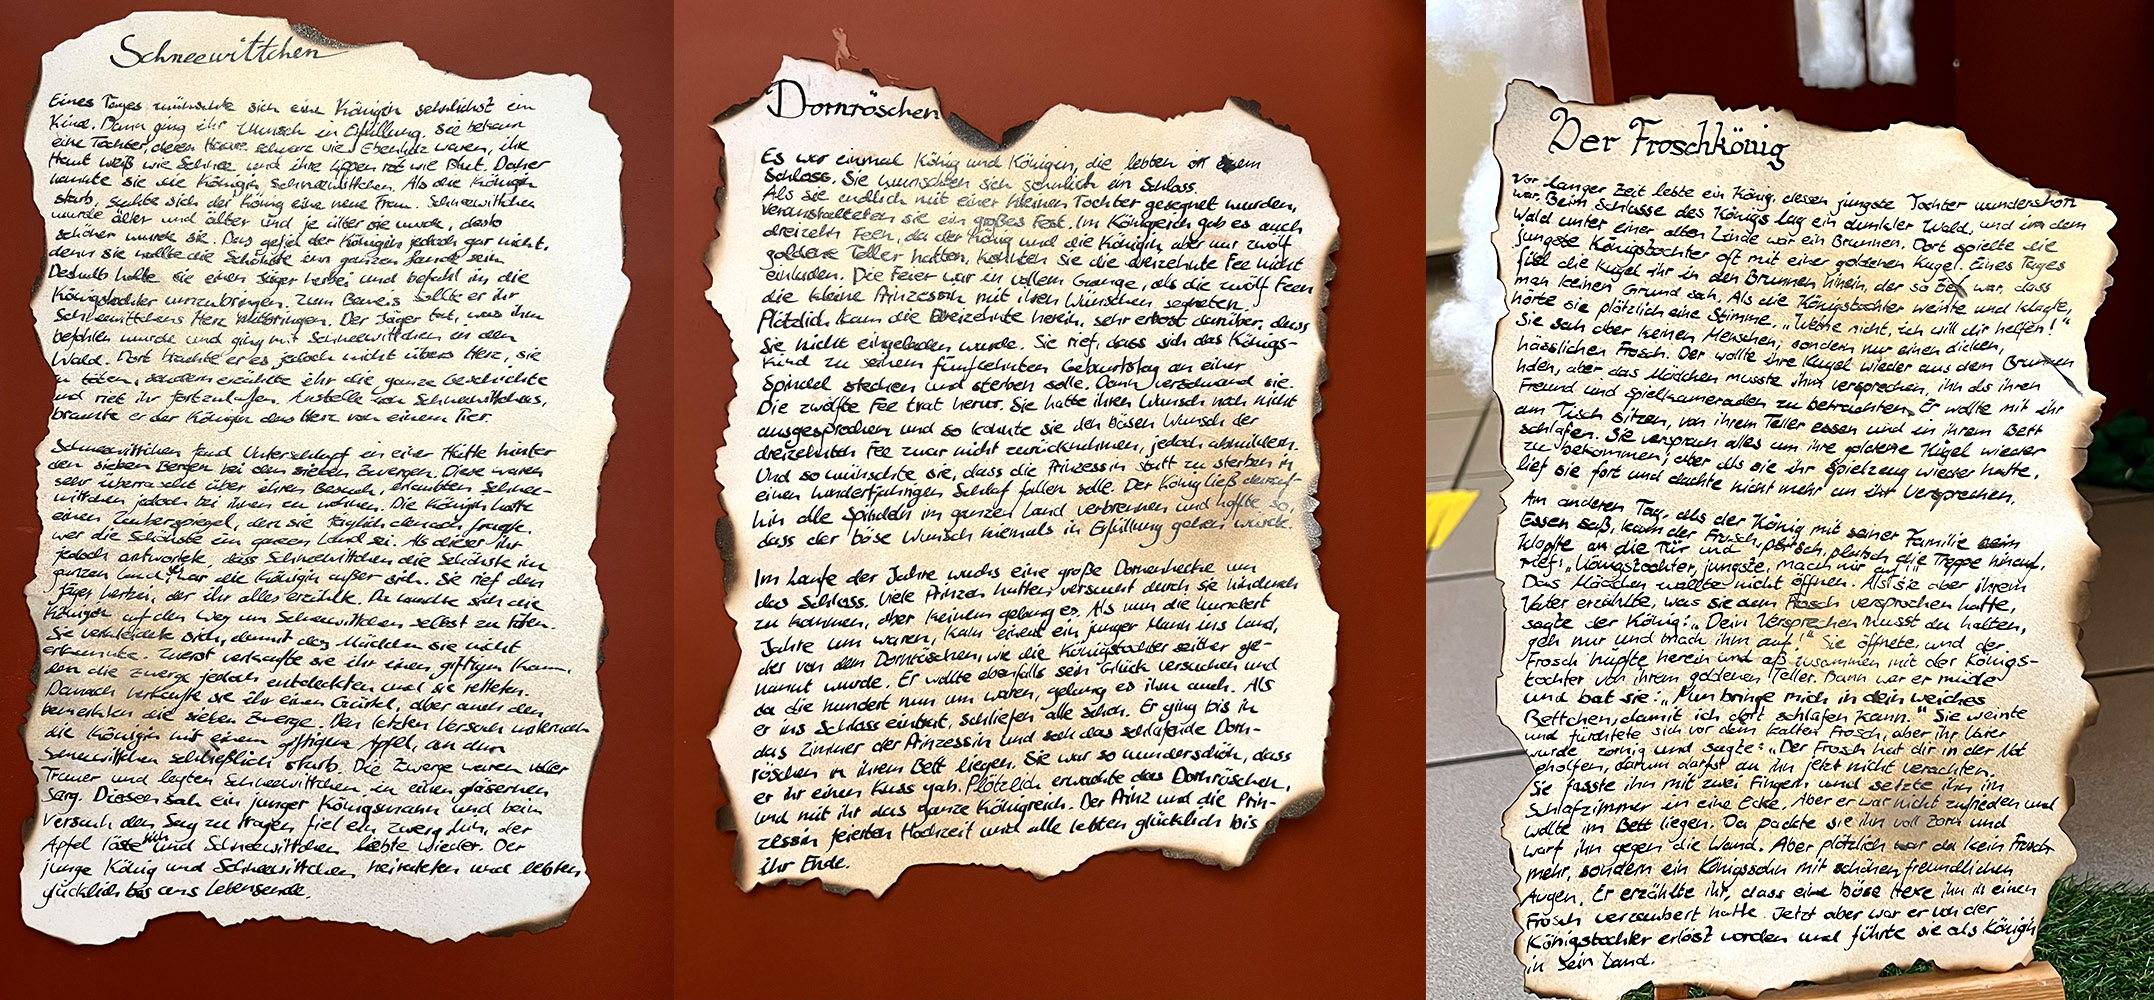 Schneewittchen
Eines Tages wünschte sich eine Königin sehnlichst ein
Kind. Dann ging ihr Wunsch in Erfüllung. Sie bekam
eine Tochter, deren Haare schwarz wie Ebenholz waren, ihre
Haut weiß wie Schnee und ihre Lippen rot wie Blut. Daher
nannte sie die Königin Schneewittchen. Als die Königin
starb, suchte sich der König eine neue Frau. Schneewittchen
wurde älter und älter und je älter sie wurde, desto
schöner wurde sie. Das gefiel der Königin jedoch gar nicht,
denn sie wollte die Schönste im ganzen Lande sein.
Deshalb holte sie einen Jäger herbei und befahl ihm die
Königstochter umzubringen. Zum Beweis sollte er ihr
Schneewittchens Herz mitbringen. Der Jäger tat, was ihm
befohlen wurde und ging mit Schneewittchen in den
Wald. Dort brachte er es jedoch nicht übers Herz, sie
zu töten, sondern erzählte ihr die ganze Geschichte
und riet ihr fortzulaufen. Anstelle von Schneewittchens,
brachte er der Königin das Herz von einem Tier.
Schneewittchen fand Unterschlupf in einer Hütte hinter
den sieben Bergen bei den sieben Zwergen. Diese waren
sehr überrascht über ihren Besuch, erlaubten Schnee-
wittchen jedoch bei ihnen zu wohnen. Die Königin hatte
einen Zauberspiegel, den sie täglich danach fragte,
wer die Schönste im ganzen Land sei. Als dieser ihr
jedoch antwortete, dass Schneewittchen die Schönste im
ganzen Land sei, war die Königin außer sich. Sie rief den
Jäger herbei, der ihr alles erzählte. Da machte sich die
Königin auf den Weg um Schneewittchen selbst zu töten.
Sie verkleidete sich, damit das Mädchen sie nicht
erkannte. Zuerst verkaufte sie ihr einen giftigen Kamm,
den die Zwerge jedoch entdeckten und sie retteten.
Danach verkaufte sie ihr einen Gürtel, aber auch den
bemerkten die sieben Zwerge. Den letzten Versuch unternahm
die Königin mit einem giftigen Apfel, an dem
Schneewittchen schließlich starb. Die Zwerge waren voller
Trauer und legten Schneewittchen in einen gläsernen
Sarg. Diesen sah ein junger Königsmann und beim
Versuch den Sarg zu tragen fiel ein Zwerg hin, der
Apfel löste sich und Schneewittchen lebte wieder. Der
junge König und Schneewittchen heirateten und lebten
glücklich bis ans Lebensende.
Dornröschen
Es war einmal König und Königin, die lebten in einem
Schloss. Sie wünschten sich sehnlich ein Schloss.
Als sie endlich mit einer kleinen Tochter gesegnet wurden,
veranstalteten sie ein großes Fest. Im Königreich gab es auch
dreizehn Feen, da der König und die Königin aber nur zwölf
goldene Teller hatten, konnten sie die dreizehnte Fee nicht
einladen. Die Feier war in vollem Gange, als die zwölf Feen
die kleine Prinzessin mit ihren Wünschen segneten.
Plötzlich kam die Dreizehnte herein, sehr erbost darüber, dass
sie nicht eingeladen wurde. Sie rief, dass sich das Königs-
kind zu seinem fünfzehnten Geburtstag an einer
Spindel stechen und sterben solle. Dann verschwand sie.
Die zwölfte Fee trat hervor. Sie hatte ihren Wunsch noch nicht
ausgesprochen und so konnte sie den bösen Wunsch der
dreizehnten Fee zwar nicht zurücknehmen, jedoch abmildern.
Und so wünschte sie, dass die Prinzessin statt zu sterben in
einen hundertjährigen Schlaf fallen solle. Der König ließ darauf-
hin alle Spindeln im ganzen Land verbrennen und hoffte so,
dass der böse Wunsch niemals in Erfüllung gehen würde.
Im Laufe der Jahre wuchs eine große Dornenhecke um
das Schloss. Viele Prinzen hatten versucht durch sie hindurch
zu kommen, aber keinem gelang es. Als nun die hundert
Jahre um waren, kam ein junger Mann ins Land,
der von dem Dornröschen, wie die Königstochter seither ge-
nannt wurde. Er wollte ebenfalls sein Glück versuchen und
da die hundert nun um waren, gelang es ihm auch. Als
er ins Schloss eintrat, schliefen alle schon. Er ging bis in
das Zimmer der Prinzessin und sah das schlafende Dorn-
röschen in ihrem Bett liegen. Sie war so wunderschön, dass
er ihr einen Kuss gab. Plötzlich erwachte das Dornröschen,
und mit ihr das ganze Königreich. Der Prinz und die Prin-
zessin feierten Hochzeit und alle lebten glücklich bis
ihr Ende.
Der Froschkönig
Vor langer Zeit lebte ein König, dessen jüngste Tochter wunderschön
war. Beim Schlosse des Königs lag ein dunkler Wald, und in dem
Wald unter einer alten Linde war ein Brunnen. Dort spielte die
jüngste Königstochter oft mit einer goldenen Kugel. Eines Tages
fiel die Kugel ihr in den Brunnen hinein, der so tief war, dass
man keinen Grund sah. Als die Königstochter weinte und klagte,
hörte sie plötzlich eine Stimme. „Weine nicht, ich will dir helfen!"
Sie sah aber keinen Menschen, sondern nur einen dicken,
hässlichen Frosch. Der wollte ihre Kugel wieder aus dem Brunnen
holen, aber das Mädchen musste ihm versprechen, ihn als ihren
Freund und Spielkameraden zu betrachten. Er wollte mit ihr
am Tisch sitzen, von ihrem Teller essen und in ihrem Bett
schlafen. Sie versprach alles um ihre goldene Kugel wieder
zu bekommen, aber als sie ihr Spielzeug wieder hatte,
lief sie fort und dachte nicht mehr an ihr Versprechen.
Am anderen Tag, als der König mit seiner Familie beim
Essen saß, kam der Frosch, plitsch, platsch die Treppe hinauf,
klopfte an die Tür und
rief: „Königstochter, jüngste, mach mir auf!"
Das Mädchen wollte nicht öffnen. Als sie aber ihrem
Vater erzählte, was sie dem Frosch versprochen hatte,
sagte der König: „Dein Versprechen musst du halten,
geh nur und mach ihm auf!" Sie öffnete, und der
Frosch hüpfte herein und aß zusammen mit der Königs-
tochter von ihrem goldenen Teller. Dann war er müde
und bat sie: „Nun bringe mich in dein weiches
Bettchen, damit ich dort schlafen kann." Sie weinte
und fürchtete sich vor dem kalten Frosch, aber ihr Vater
wurde zornig und sagte: „Der Frosch hat dir in der Not
geholfen, darum darfst du ihn jetzt nicht verachten.
Sie fasste ihn mit zwei Fingern und setzte ihn im
Schlafzimmer in eine Ecke. Aber er war nicht zufrieden und
wollte im Bett liegen. Da packte sie ihn voll Zorn und
warf ihn gegen die Wand. Aber plötzlich war da kein Frosch
mehr, sondern ein Königssohn mit schönen freundlichen
Augen. Er erzählte ihr, dass eine böse Hexe ihn in einen
Frosch verzaubert hatte. Jetzt aber war er von der
Königstochter erlöst worden und führte sie als Königin
in sein Land.